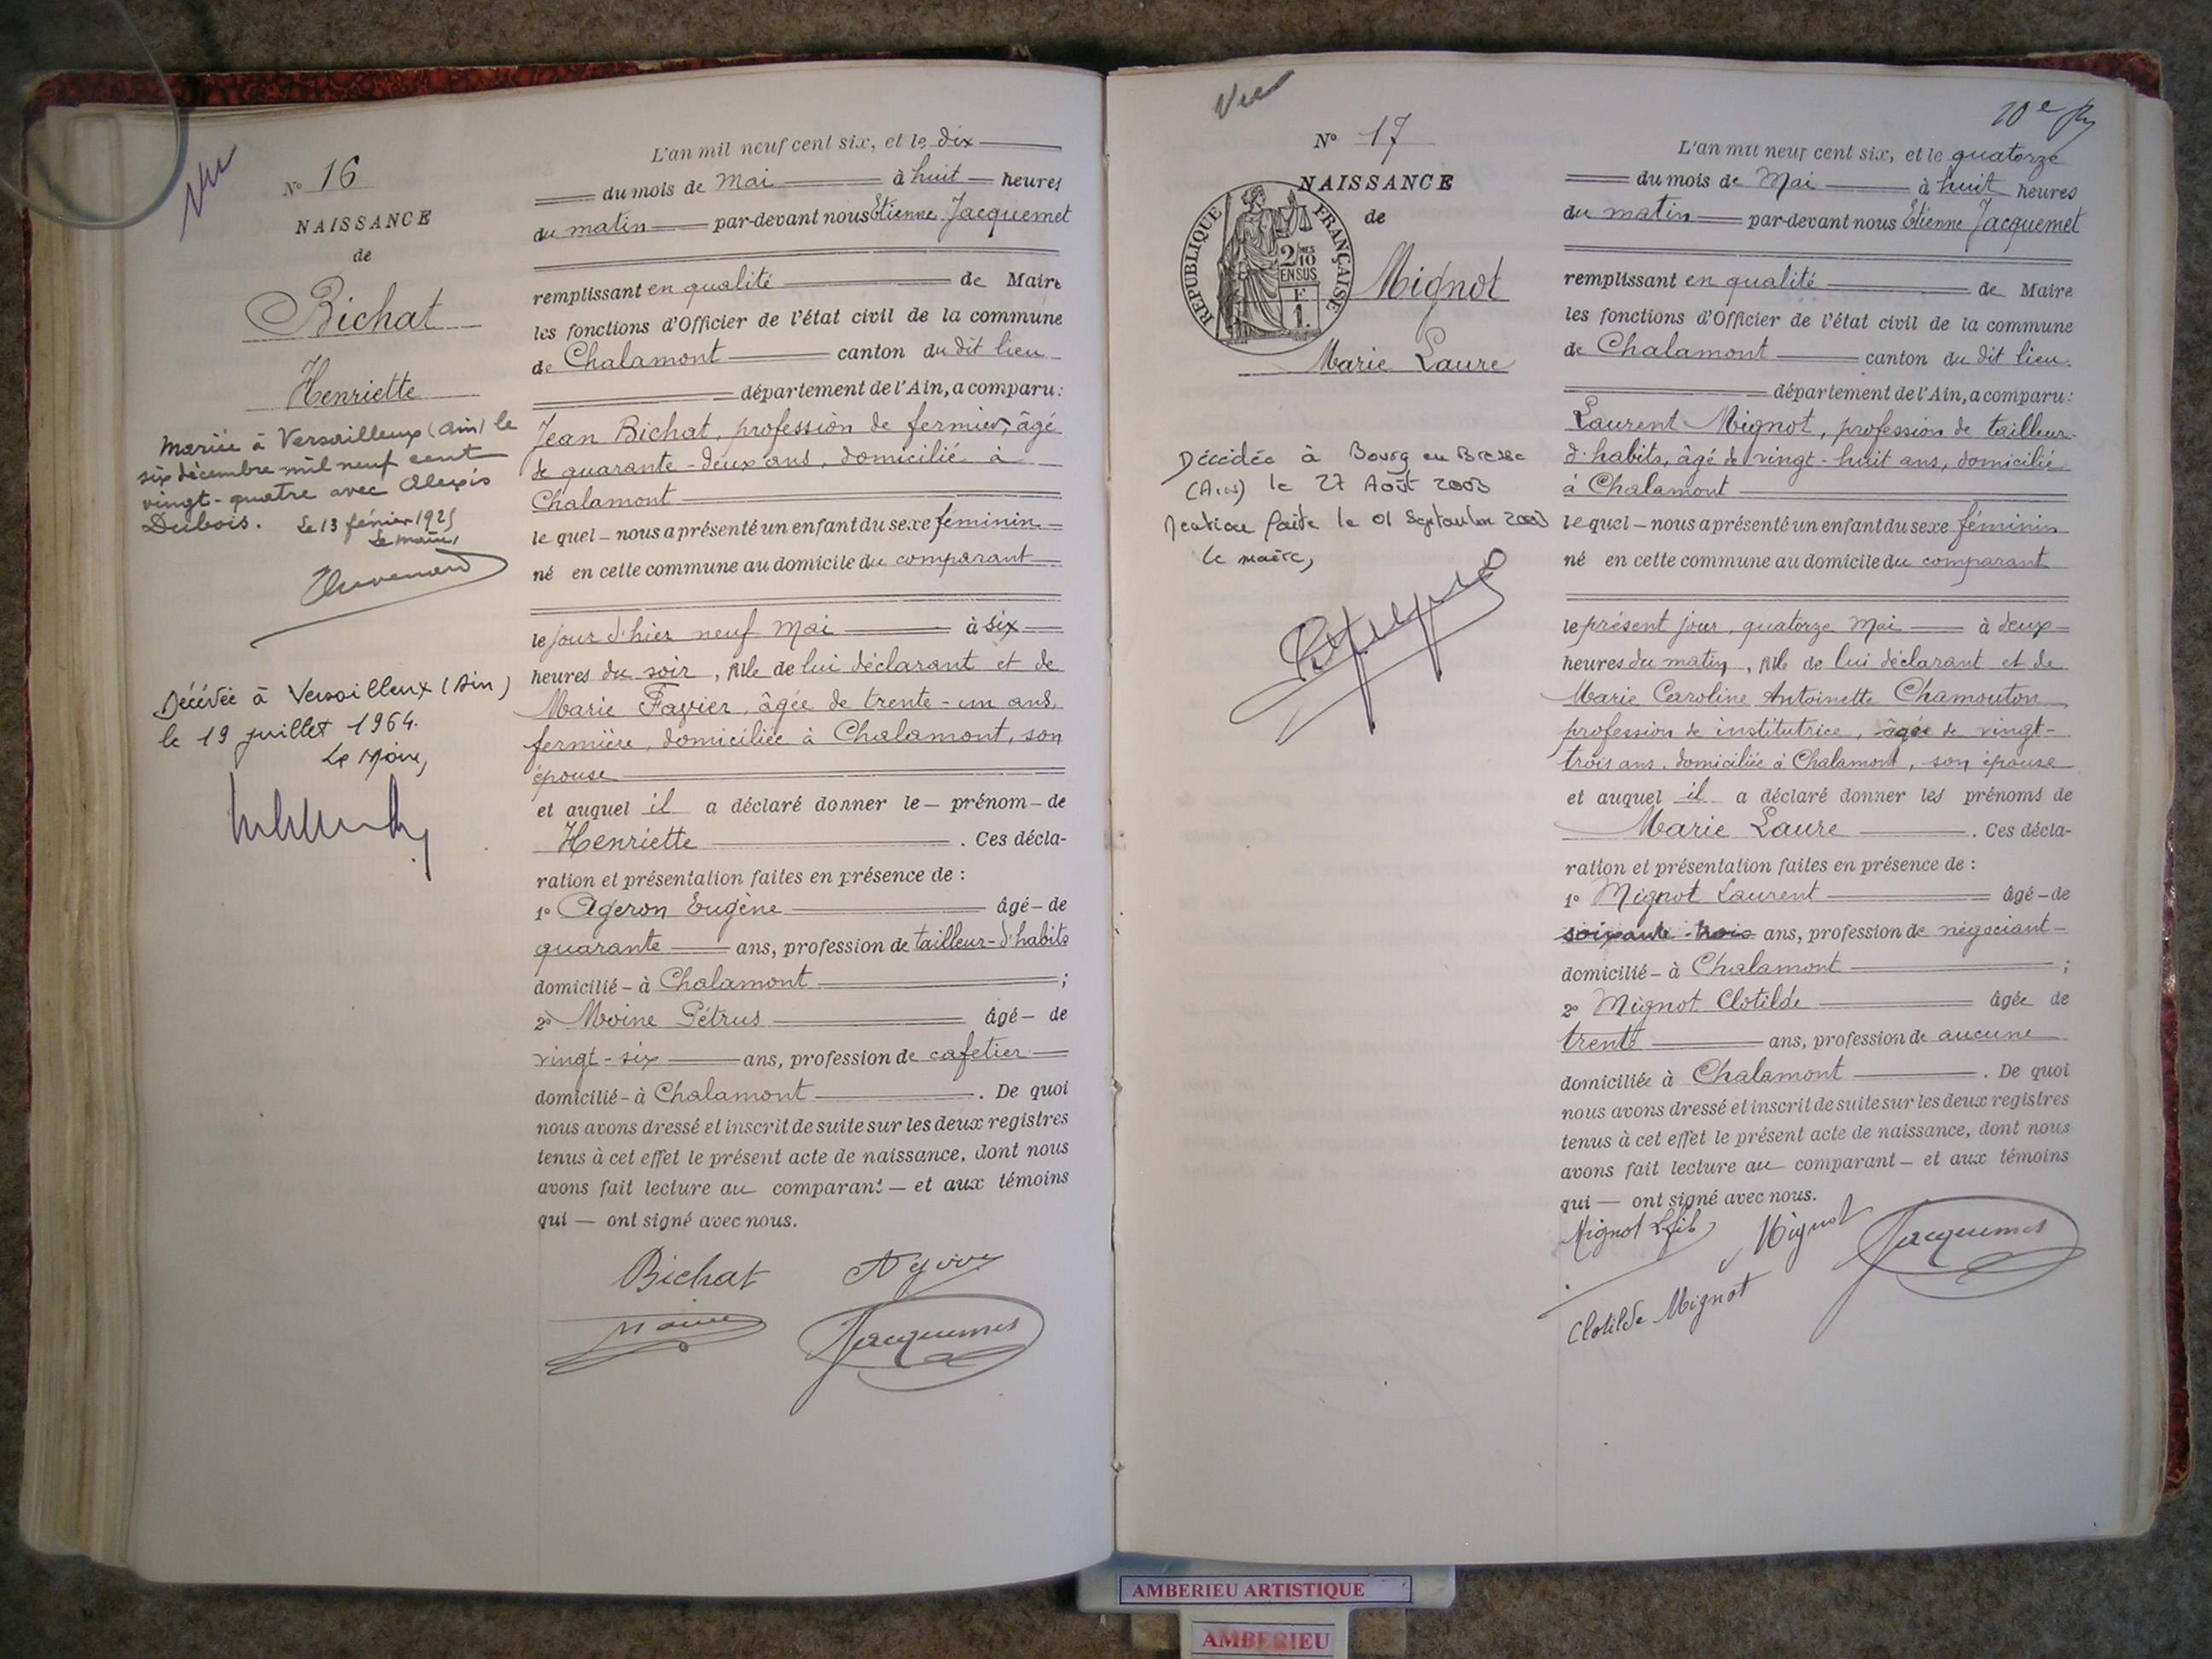 Vu
N° 16
NAISSANCE
de
Bichat
Henriette
Mariée à Versailleux (Ain) le
six décembre mil neuf cent
vingt-quatre avec Alexis
Dubois. Le 13 février 1925
Le maire,
Décédée à Versailleux (Ain)
le 19 juillet 1964.
Le Maire,
L'an mil neuf cent six, et le dix
du mois de Mai à huit heures
du matin par-devant nous Etienne Jacquemet
remplissant en qualité de Maire
les fonctions d'Officier de l'état civil de la commune
de Chalamont canton du dit lieu
département de l'Ain, a comparu:
Jean Bichat, profession de fermier, âgé
de quarante-deux ans, domicilié à
Chalamont
le quel – nous a présenté un enfant du sexe féminin
né en cette commune au domicile du comparant
le jour d'hier neuf Mai à six
heures du soir, fille de lui déclarant et de
Marie Favier, âgée de trente-un ans,
fermière, domiciliée à Chalamont, son
épouse
et auquel il a déclaré donner le – prénom – de
Henriette. Ces décla-
ration et présentation faites en présence de :
1° Ageron Eugène âgé – de
quarante ans, profession de tailleur-d'habits
domicilié – à Chalamont ;
2° Moine Pétrus âgé – de
vingt-six ans, profession de cafetier
domicilié – à Chalamont. De quoi
nous avons dressé et inscrit de suite sur les deux registres
tenus à cet effet le présent acte de naissance, dont nous
avons fait lecture au comparant – et aux témoins
qui — ont signé avec nous.
Bichat
Moine Jacquemet
Vu
N° 17
NAISSANCE
de
REPUBLIQUE FRANÇAISE
2/10 EN SUS
F 1.
Mignot
Marie Laure
Décédée à Bourg en Bresse
(Ain) le 27 Août 2003
le 01 Septembre 2003
le maire,
10e
L'an mil neuf cent six, et le quatorze
du mois de Mai à huit heures
du matin par-devant nous Etienne Jacquemet
remplissant en qualité de Maire
les fonctions d'Officier de l'état civil de la commune
de Chalamont canton du dit lieu
département de l'Ain, a comparu:
Laurent Mignot, profession de tailleur
d'habits, âgé de vingt-huit ans, domicilié
à Chalamont
le quel – nous a présenté un enfant du sexe féminin
né en cette commune au domicile du comparant
le présent jour, quatorze Mai à deux
heures du matin, fille de lui déclarant et de
Marie Caroline Antoinette Chamouton
profession de institutrice, âgée de vingt-
trois ans, domiciliée à Chalamont, son épouse
et auquel il a déclaré donner les prénoms de
Marie Laure. Ces décla-
ration et présentation faites en présence de :
1° Mignot Laurent âgé – de
soixante-trois ans, profession de négociant
domicilié – à Chalamont ;
2° Mignot Clotilde âgée de
trente ans, profession de aucune
domiciliée à Chalamont. De quoi
nous avons dressé et inscrit de suite sur les deux registres
tenus à cet effet le présent acte de naissance, dont nous
avons fait lecture au comparant – et aux témoins
qui — ont signé avec nous.
Mignot L fils Mignot Jacquemet
Clotilde Mignot
AMBERIEU ARTISTIQUE
AMBERIEU